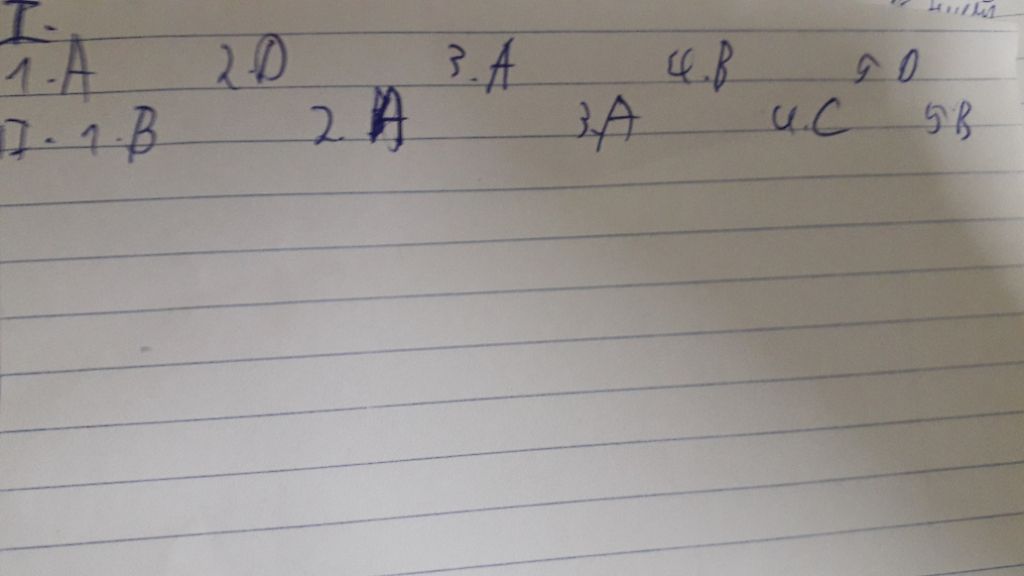 I.
1.A 2.D 3.A 4.B 5 D
II. 1.B 2.A 3.A 4.C 5.B